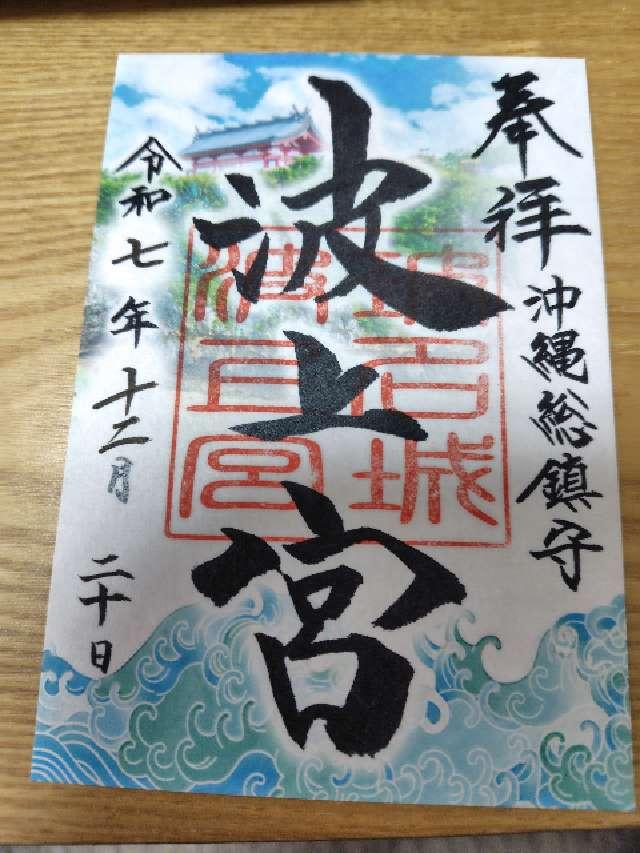 奉拝
沖縄総鎮守
波上宮
琉名城
波上宮
令和七年十二月 二十日